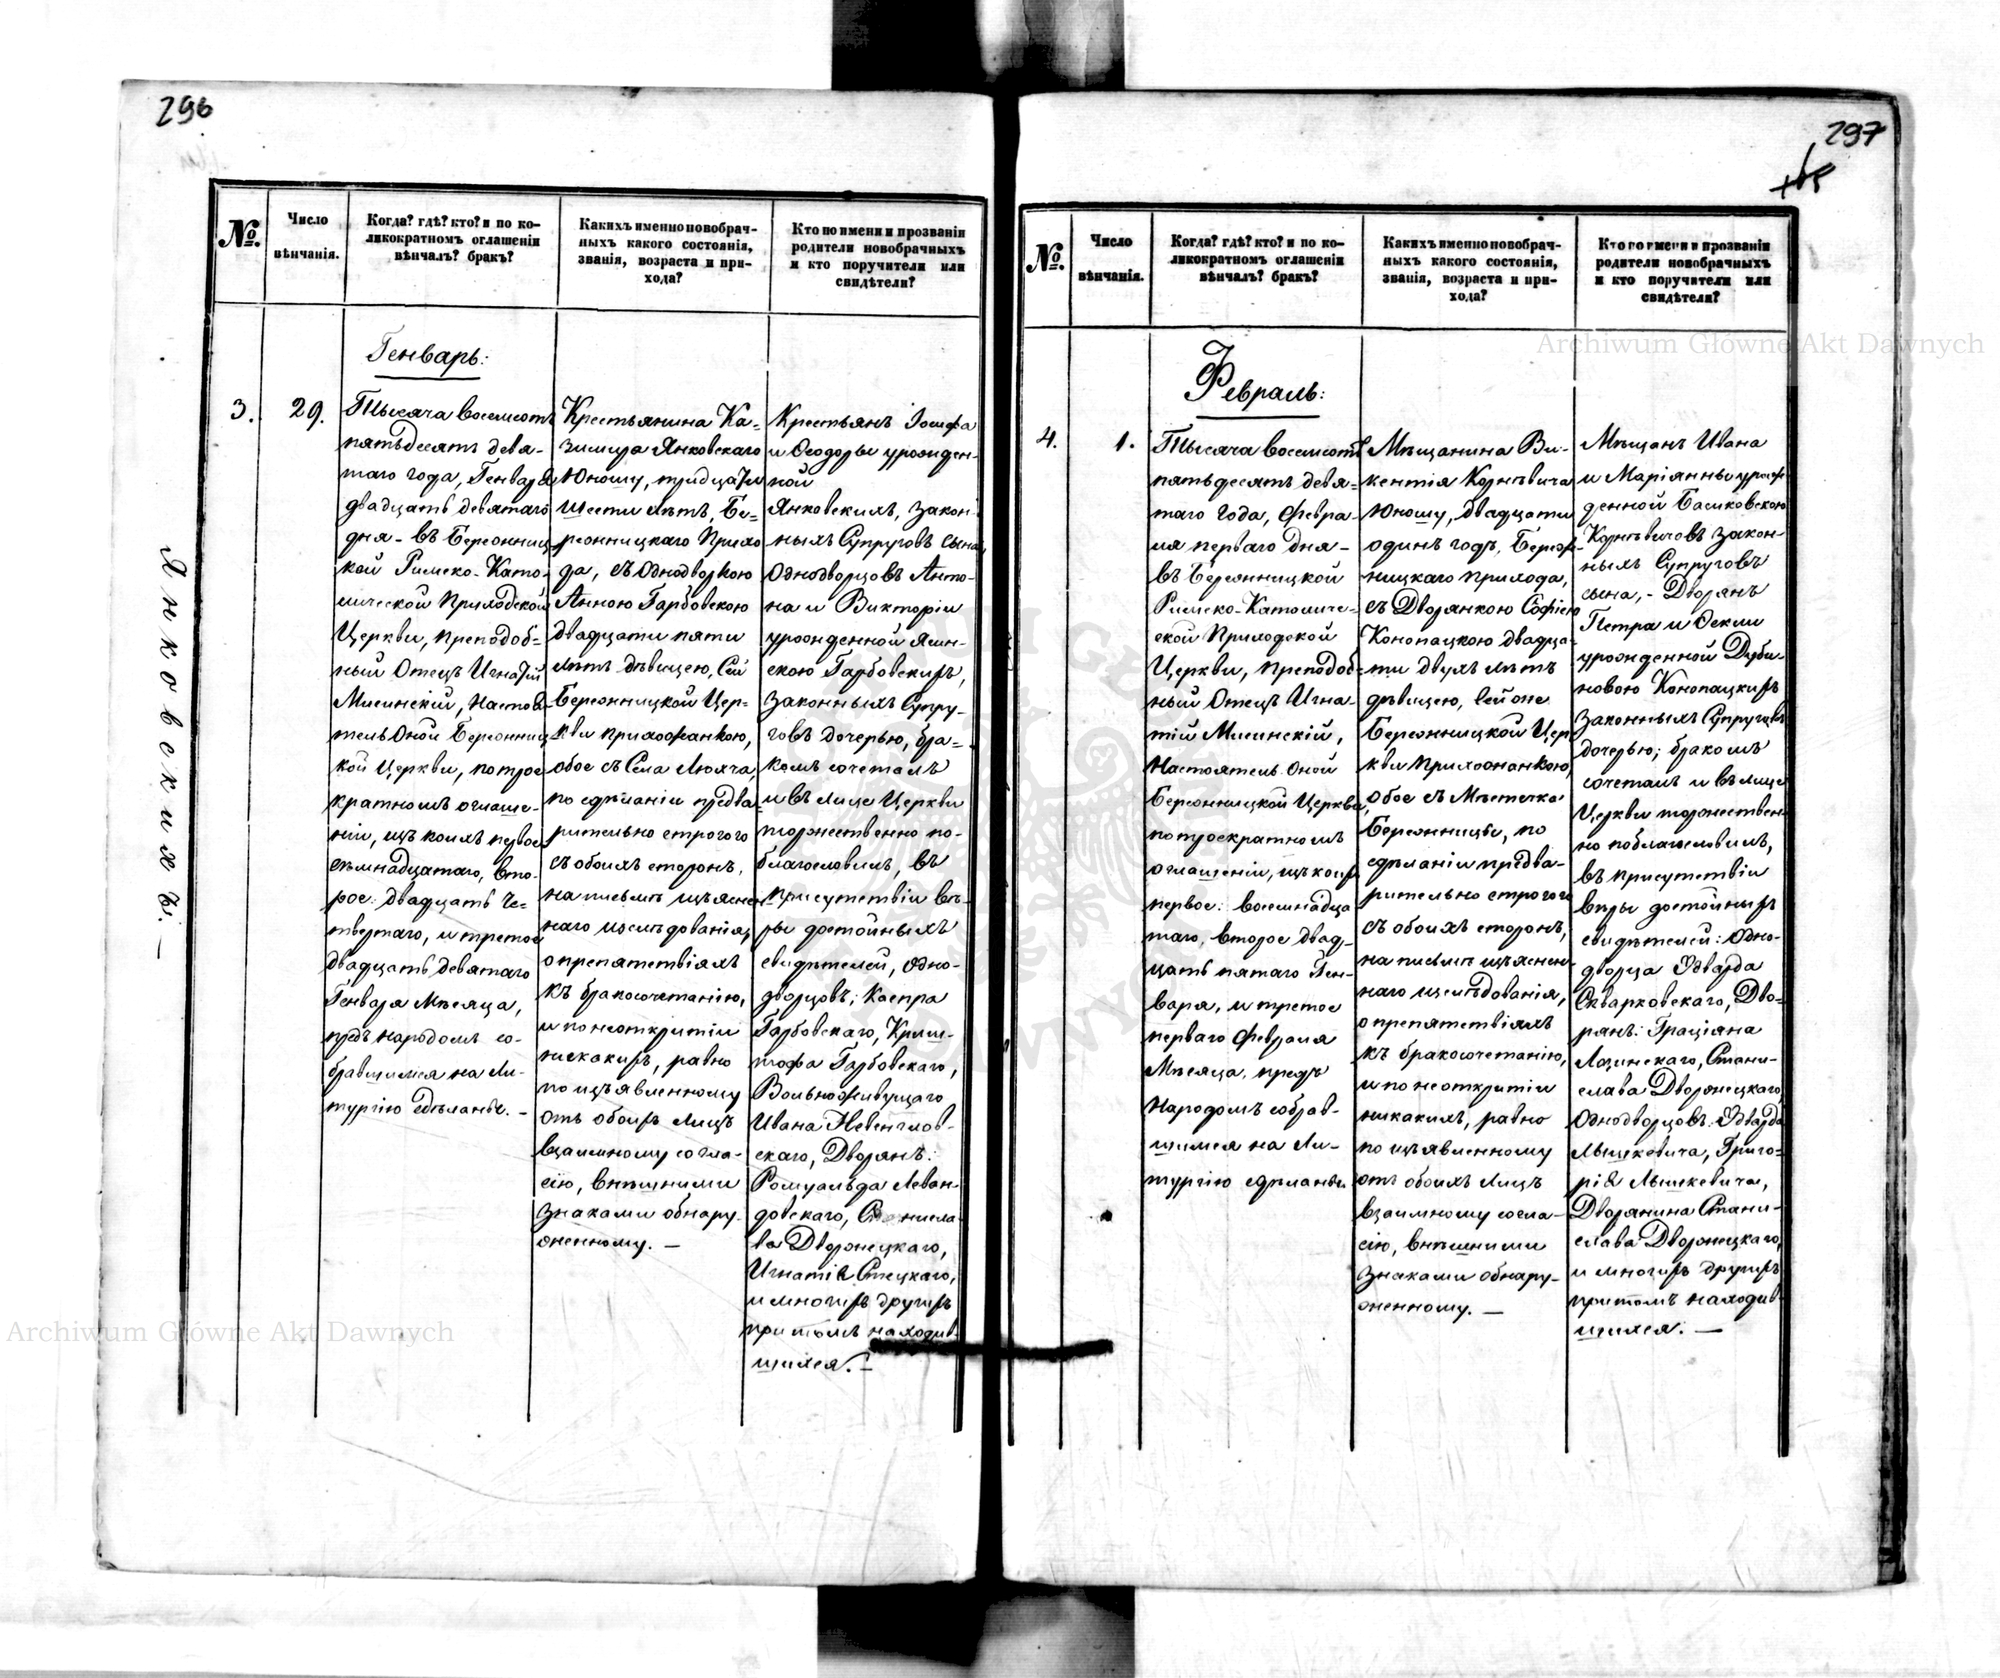 296
№.
Число
вѣнчанія.
Когда? гдѣ? кто? и по ко-
ликократномъ оглашеніи
вѣнчалъ? бракъ?
Какихъ именно новобрач-
ныхъ какого состоянія,
званія, возраста и при-
хода?
Кто по имени и прозванію
родители новобрачныхъ
и кто поручители или
свидѣтели?
Янковскихъ. —
3.
29.
Генварь:
Тысяча восемсотъ
пятьдесятъ девя-
таго года, Генваря
двадцать девятаго
дня - въ Бережниц
кой Римско-Като-
лической Приходской
Церкви, преподоб-
ный Отецъ Игнатій
Мисинскій, Настоя
тель Оной Бережниц
кой Церкви, по трое
кратномъ оглаше-
ніи, изъ коихъ первое
семнадцатаго, вто-
рое: двадцать че-
твертаго, и третое
двадцать девятаго
Генваря Мѣсяца,
предъ народомъ со-
бравшимся на Ли-
тургію сдѣланы. -
Крестьянина Ка-
зимира Янковскаго
Юношу, тридцати
шести лѣтъ, Бе-
режницкаго Прихо
да, съ Однодворкою
Анною Гарбовскою
двадцати пяти
лѣтъ дѣвицею, Сей
Бережницкой Цер-
кви прихожанкою,
обое съ Села Люхча,
по сдѣланіи предва-
рительно строгого
съ обоихъ сторонъ,
на письмѣ изъяснен
наго изслѣдованія,
о препятствіяхъ
къ бракосочетанію,
и по неоткрытіи
никакихъ, равно
по изъявленному
отъ обоихъ Лицъ
взаимному согла-
сію, внѣшними
знаками обнару-
женному. —
Крестьянъ Іосифа
и Ѳеодоры урожден-
ной
Янковскихъ, закон-
ныхъ Супруговъ сына,
Однодворцовъ Анто-
на и Викторіи
урожденной Ясин-
скою Гарбовскихъ,
законныхъ Супру-
говъ дочерью, бра-
комъ сочеталъ
и въ лице Церкви
торжественно по-
благословилъ, въ
присутствіи вѣ-
ры достойныхъ
свидѣтелей, Одно-
дворцовъ; Каспра
Гарбовскаго, Криш-
тофа Гарбовскаго,
Вольноживущаго
Ивана Невенглов-
скаго, Дворянъ:
Ромуальда Леван-
довскаго, Станисла-
ва Дворжецкаго,
Игнатія Стецкаго,
и многихъ другихъ
при томъ находив-
шихся. —
297
№.
Число
вѣнчанія.
Когда? гдѣ? кто? и по ко-
ликократномъ оглашеніи
вѣнчалъ? бракъ?
Какихъ именно новобрач-
ныхъ какого состоянія,
званія, возраста и при-
хода?
Кто по имени и прозванію
родители новобрачныхъ
и кто поручители или
свидѣтели?
4.
1.
Февраль:
Тысяча восемсотъ
пятьдесятъ девя-
таго года, Февра-
ля перваго дня -
въ Бережницкой
Римско-Католиче-
ской Приходской
Церкви, преподоб-
ный Отецъ Игна-
тій Мисинскій,
Настоятель Оной
Бережницкой Церкви,
по троекратномъ
оглашеніи, изъ коихъ
первое: восемнадца
таго, второе двад-
цать пятаго Ген-
варя, и третое
перваго Февраля
Мѣсяца, предъ
Народомъ собрав-
шимся на Ли-
тургію сдѣланы.
Мѣщанина Ви-
кентія Корневича
Юношу, двадцати
одинъ годъ, Береж-
ницкаго прихода,
съ Дворянкою Софіею
Конопацкою двадца-
ти двухъ лѣтъ
дѣвицею, сей же
Бережницкой Цер
кви прихожанкою,
обое съ Мѣстечка
Бережницы, по
сдѣланіи предва-
рительно строгого
съ обоихъ сторонъ,
на письмѣ изъяснен-
наго изслѣдованія,
о препятствіяхъ
къ бракосочетанію,
и по неоткрытіи
никакихъ, равно
по изъявленному
отъ обоихъ Лицъ
взаимному согла-
сію, внѣшними
знаками обнару-
женному. —
Мѣщанъ Ивана
и Маріянны урож-
денной Баськовскою
Корневичовъ закон-
ныхъ Супруговъ
сына, - Дворянъ
Петра и Ѳекли
урожденной Дуби-
новою Конопацкихъ
законныхъ Супруговъ
дочерью; бракомъ
сочеталъ и въ лице
Церкви торжествен-
но поблагословилъ,
въ присутствіи
вѣры достойныхъ
свидѣтелей: Одно-
дворца Эдварда
Скварковскаго, Дво-
рянъ: Граціяна
Лозинскаго, Стани-
слава Дворжецкаго,
Однодворцовъ: Эдварда
Лышкевича, Григо-
рія Лышкевича,
Дворянина Стани-
слава Дворжецкаго,
и многихъ другихъ
притомъ находив-
шихся. —
Archiwum Główne Akt Dawnych
Archiwum Główne Akt Dawnych